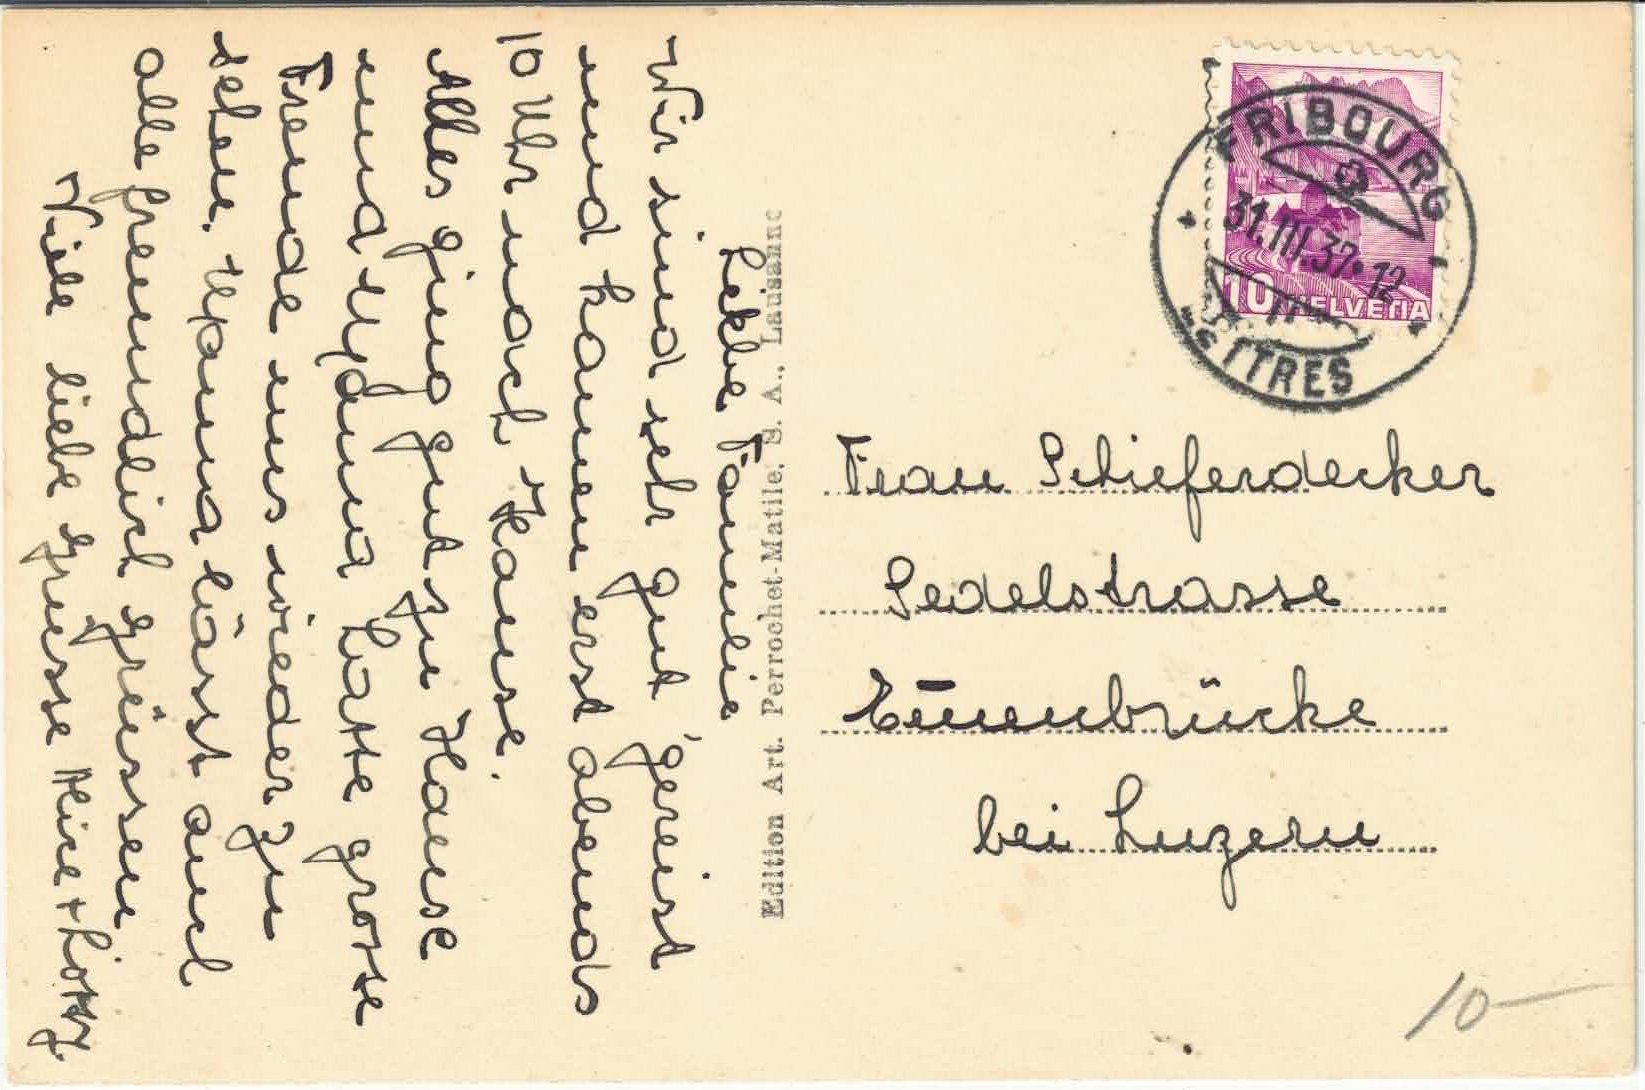 Liebe Familie
Wir sind sehr gut gereist
und kamen erst abends
10 Uhr nach Hause.
Alles ging gut zu Hause
und Mama hatte grosse
Freude uns wieder zu
sehen. Mama lässt auch
alle freundlich grüssen
Viele liebe Grüsse Alice + Lotty
Edition Art. Perrochet-Matile, S. A., Lausanne
FRIBOURG
31.III.37-12
LETTRES
10 HELVETIA
Frau Schieferdecker
Sedelstrasse
Emmenbrücke
bei Luzern
10—